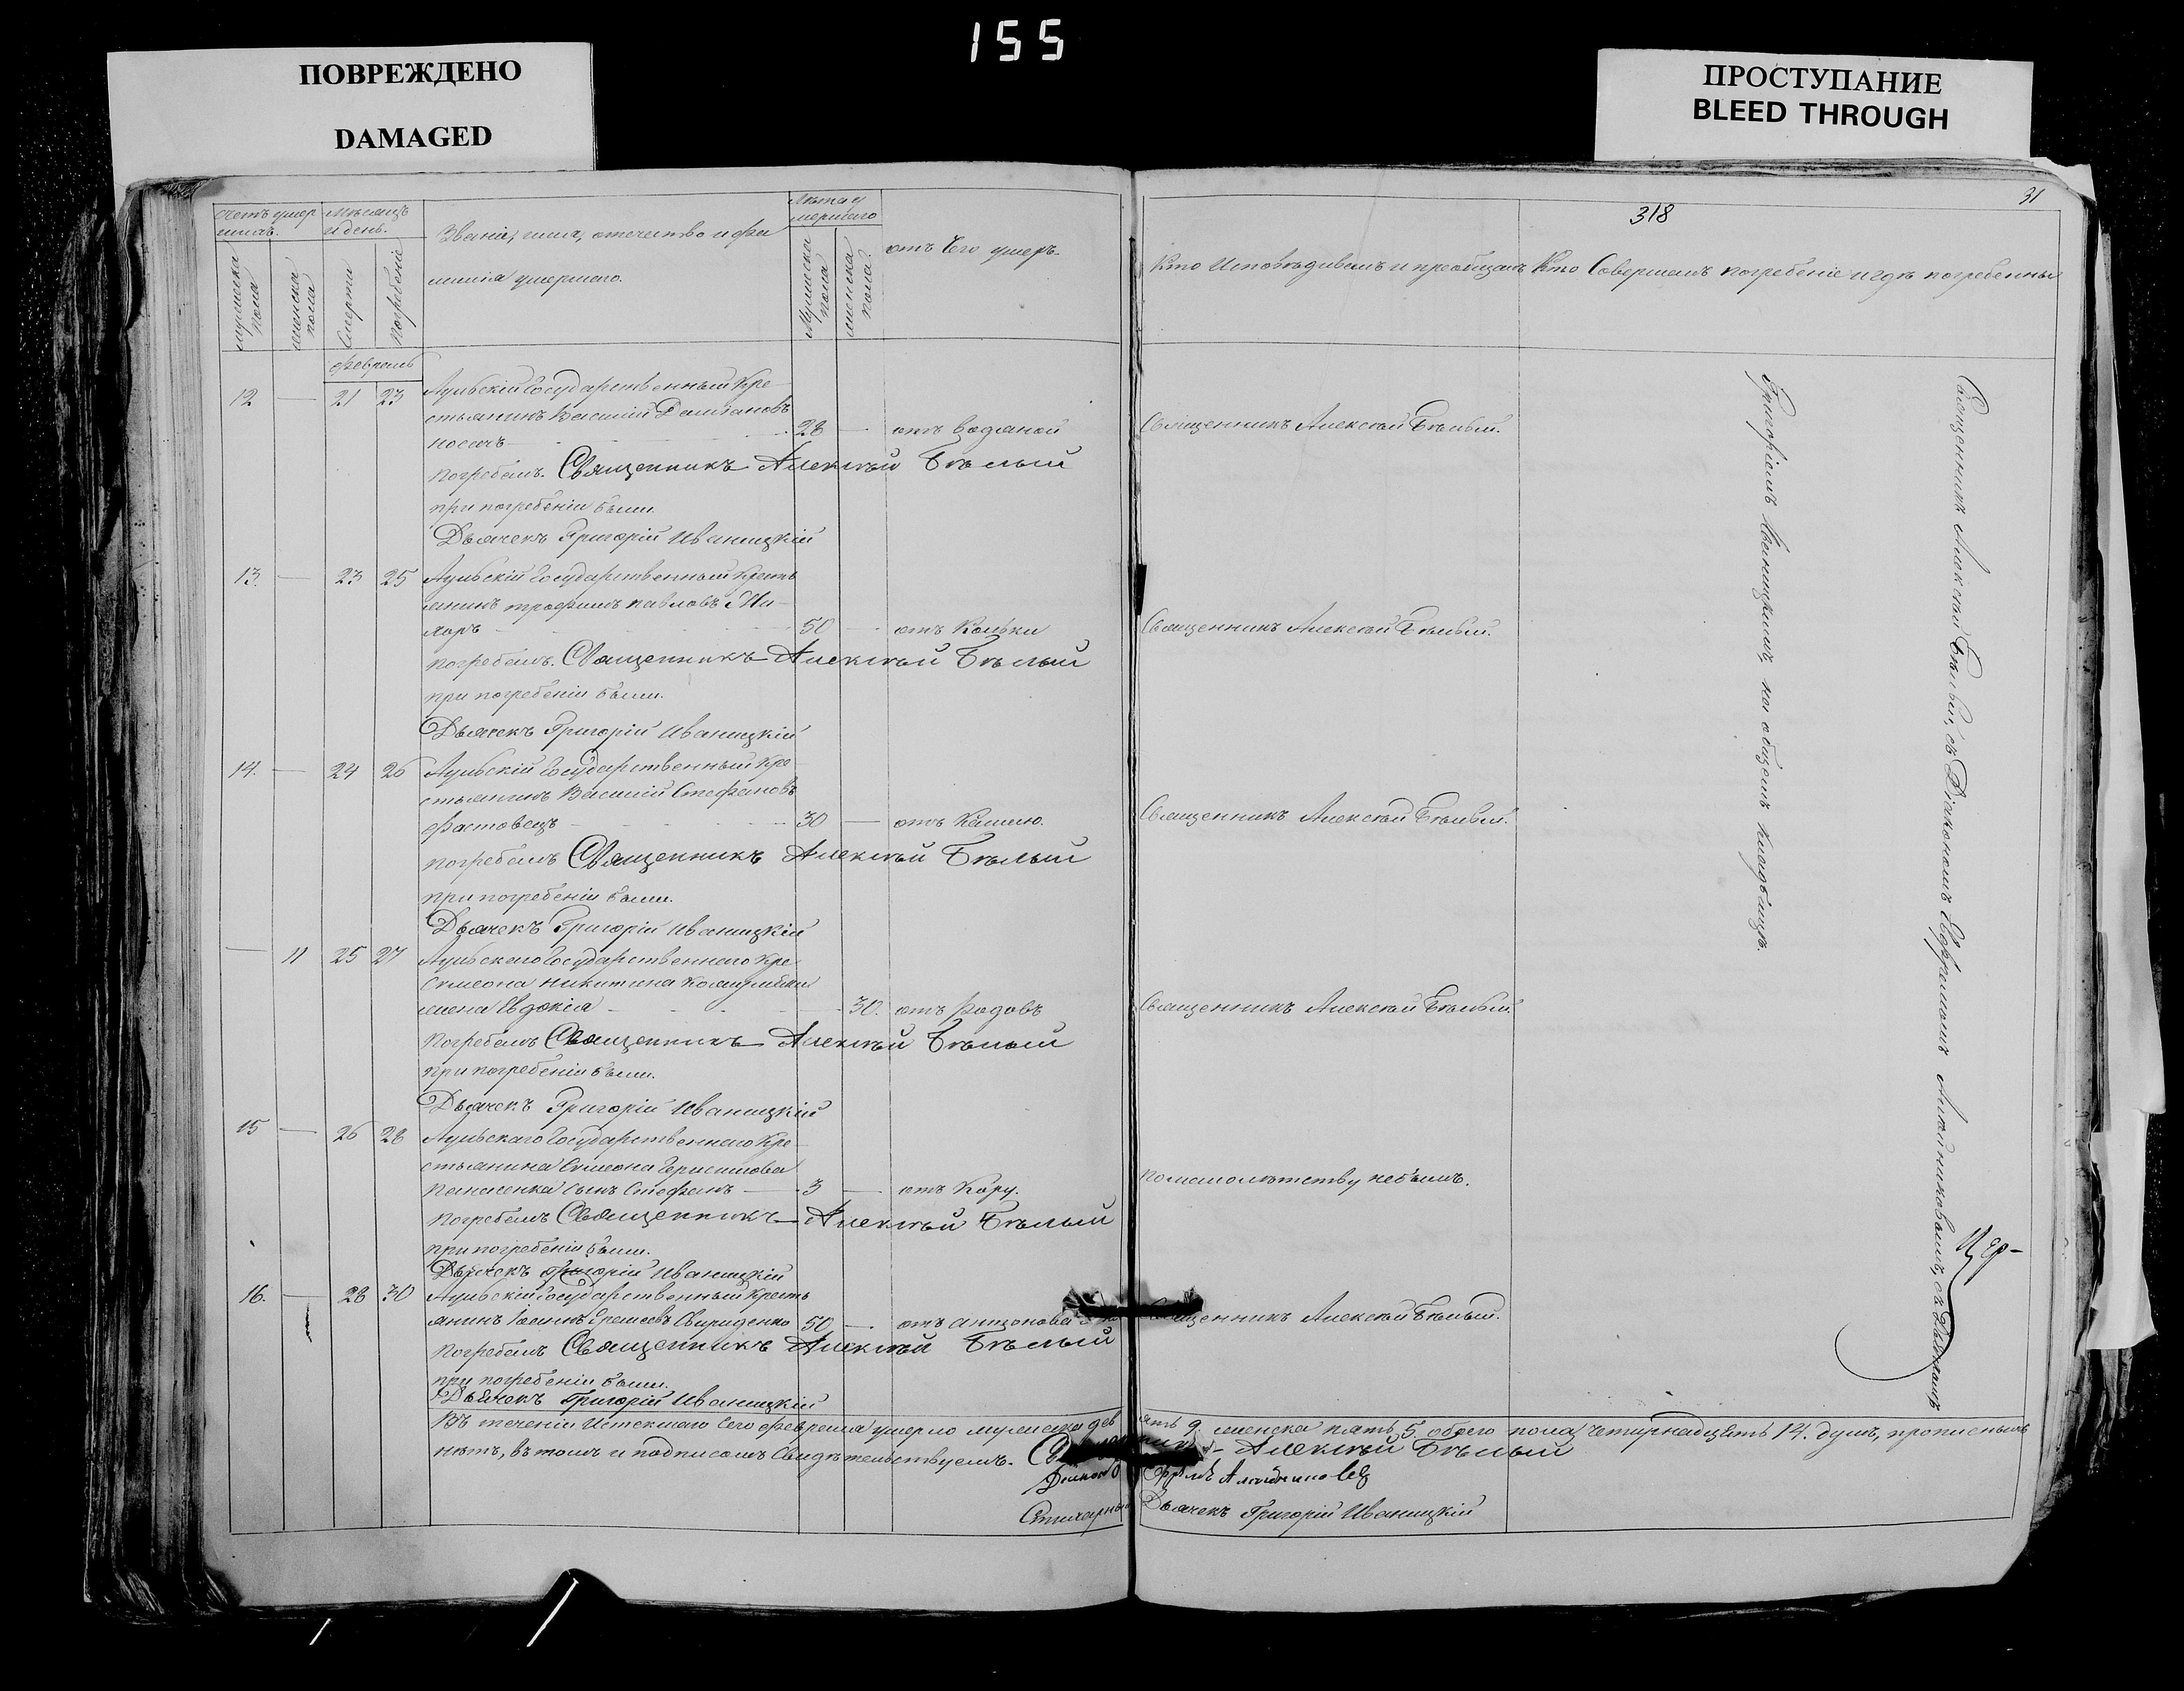 155
ПОВРЕЖДЕНО
DAMAGED
ПРОСТУПАНИЕ
BLEED THROUGH
31
318
Счетъ умер
шихъ.
мужеска пола
женска пола
Мѣсяцъ
и день.
Смерти
погребенія
Званіе, имя, отечество и фа
милія умершаго.
Лѣта у
мершаго
Мужеска пола
женска пола
отъ Чего умеръ.
Кто Исповѣдивалъ и пріобщалъ
Кто Совершалъ погребеніе и гдѣ погребенны
февраль
12 — 21 23 Аульскій Государственный Кре-
стьянинъ Василій Даміановъ
Носачъ 28 — отъ водяной Священникъ Алексѣй Бѣлый.
погребалъ. Священникъ Алексѣй Бѣлый
при погребеніи были.
Дьячекъ Григорій Иваницкій
13. — 23 25 Аульскій Государственный Кресть
янинъ трофимъ павловъ
50 — отъ Кольки Священникъ Алексѣй Бѣлый.
погребалъ. Священникъ Алексѣй Бѣлый
при погребеніи были.
Дьячекъ Григорій Иваницкій
14. — 24 26 Аульскій Государственный Кре-
стьянинъ Василій Стефановъ
фастовецъ 30 — отъ Кашлю. Священникъ Алексѣй Бѣлый.
погребалъ Священникъ Алексѣй Бѣлый
при погребеніи были.
Дьячекъ Григорій Иваницкій
— 11 25 27 Аульскаго Государственнаго Кре
Симеона Никитина
жена Евдокія 30. отъ родовъ Священникъ Алексѣй Бѣлый.
Погребалъ Священникъ Алексѣй Бѣлый
при погребеніи были.
Дьячекъ Григорій Иваницкій
15 — 26 28 Аульскаго Государственнаго Кре-
стьянина Симеона Герасимова
Панасенка сынъ Стефанъ — 3 — отъ Кору. По малолѣтству небылъ.
Погребалъ Священникъ Алексѣй Бѣлый
при погребеніи были.
Дьячекъ Григорій Иваницкій
16. — 28 30 Аульскій Государственный Кресть
янинъ Іоаннъ Свириденко 50 —. отъ антонова Священникъ Алексѣй Бѣлый.
Погребалъ Священникъ Алексѣй Бѣлый
при погребеніи были.
Дьячекъ Григорій Иваницкій
Священникъ Алексѣй Бѣлый, съ Діакономъ Ефремомъ съ Дьячкомъ
Григоріемъ Иваницкимъ, на общемъ кладбищѣ.
Въ теченіи Истекшаго Сего февраля умерло мужеска девять 9 женска пять 5. обоего пола четырнадцять 14. душъ, прописныхъ
нѣтъ, въ томъ и подписомъ Свидѣтельствуемъ. Священникъ Алексѣй Бѣлый
Діаконъ Ефремъ
Стихарный Дьячекъ Григорій Иваницкій